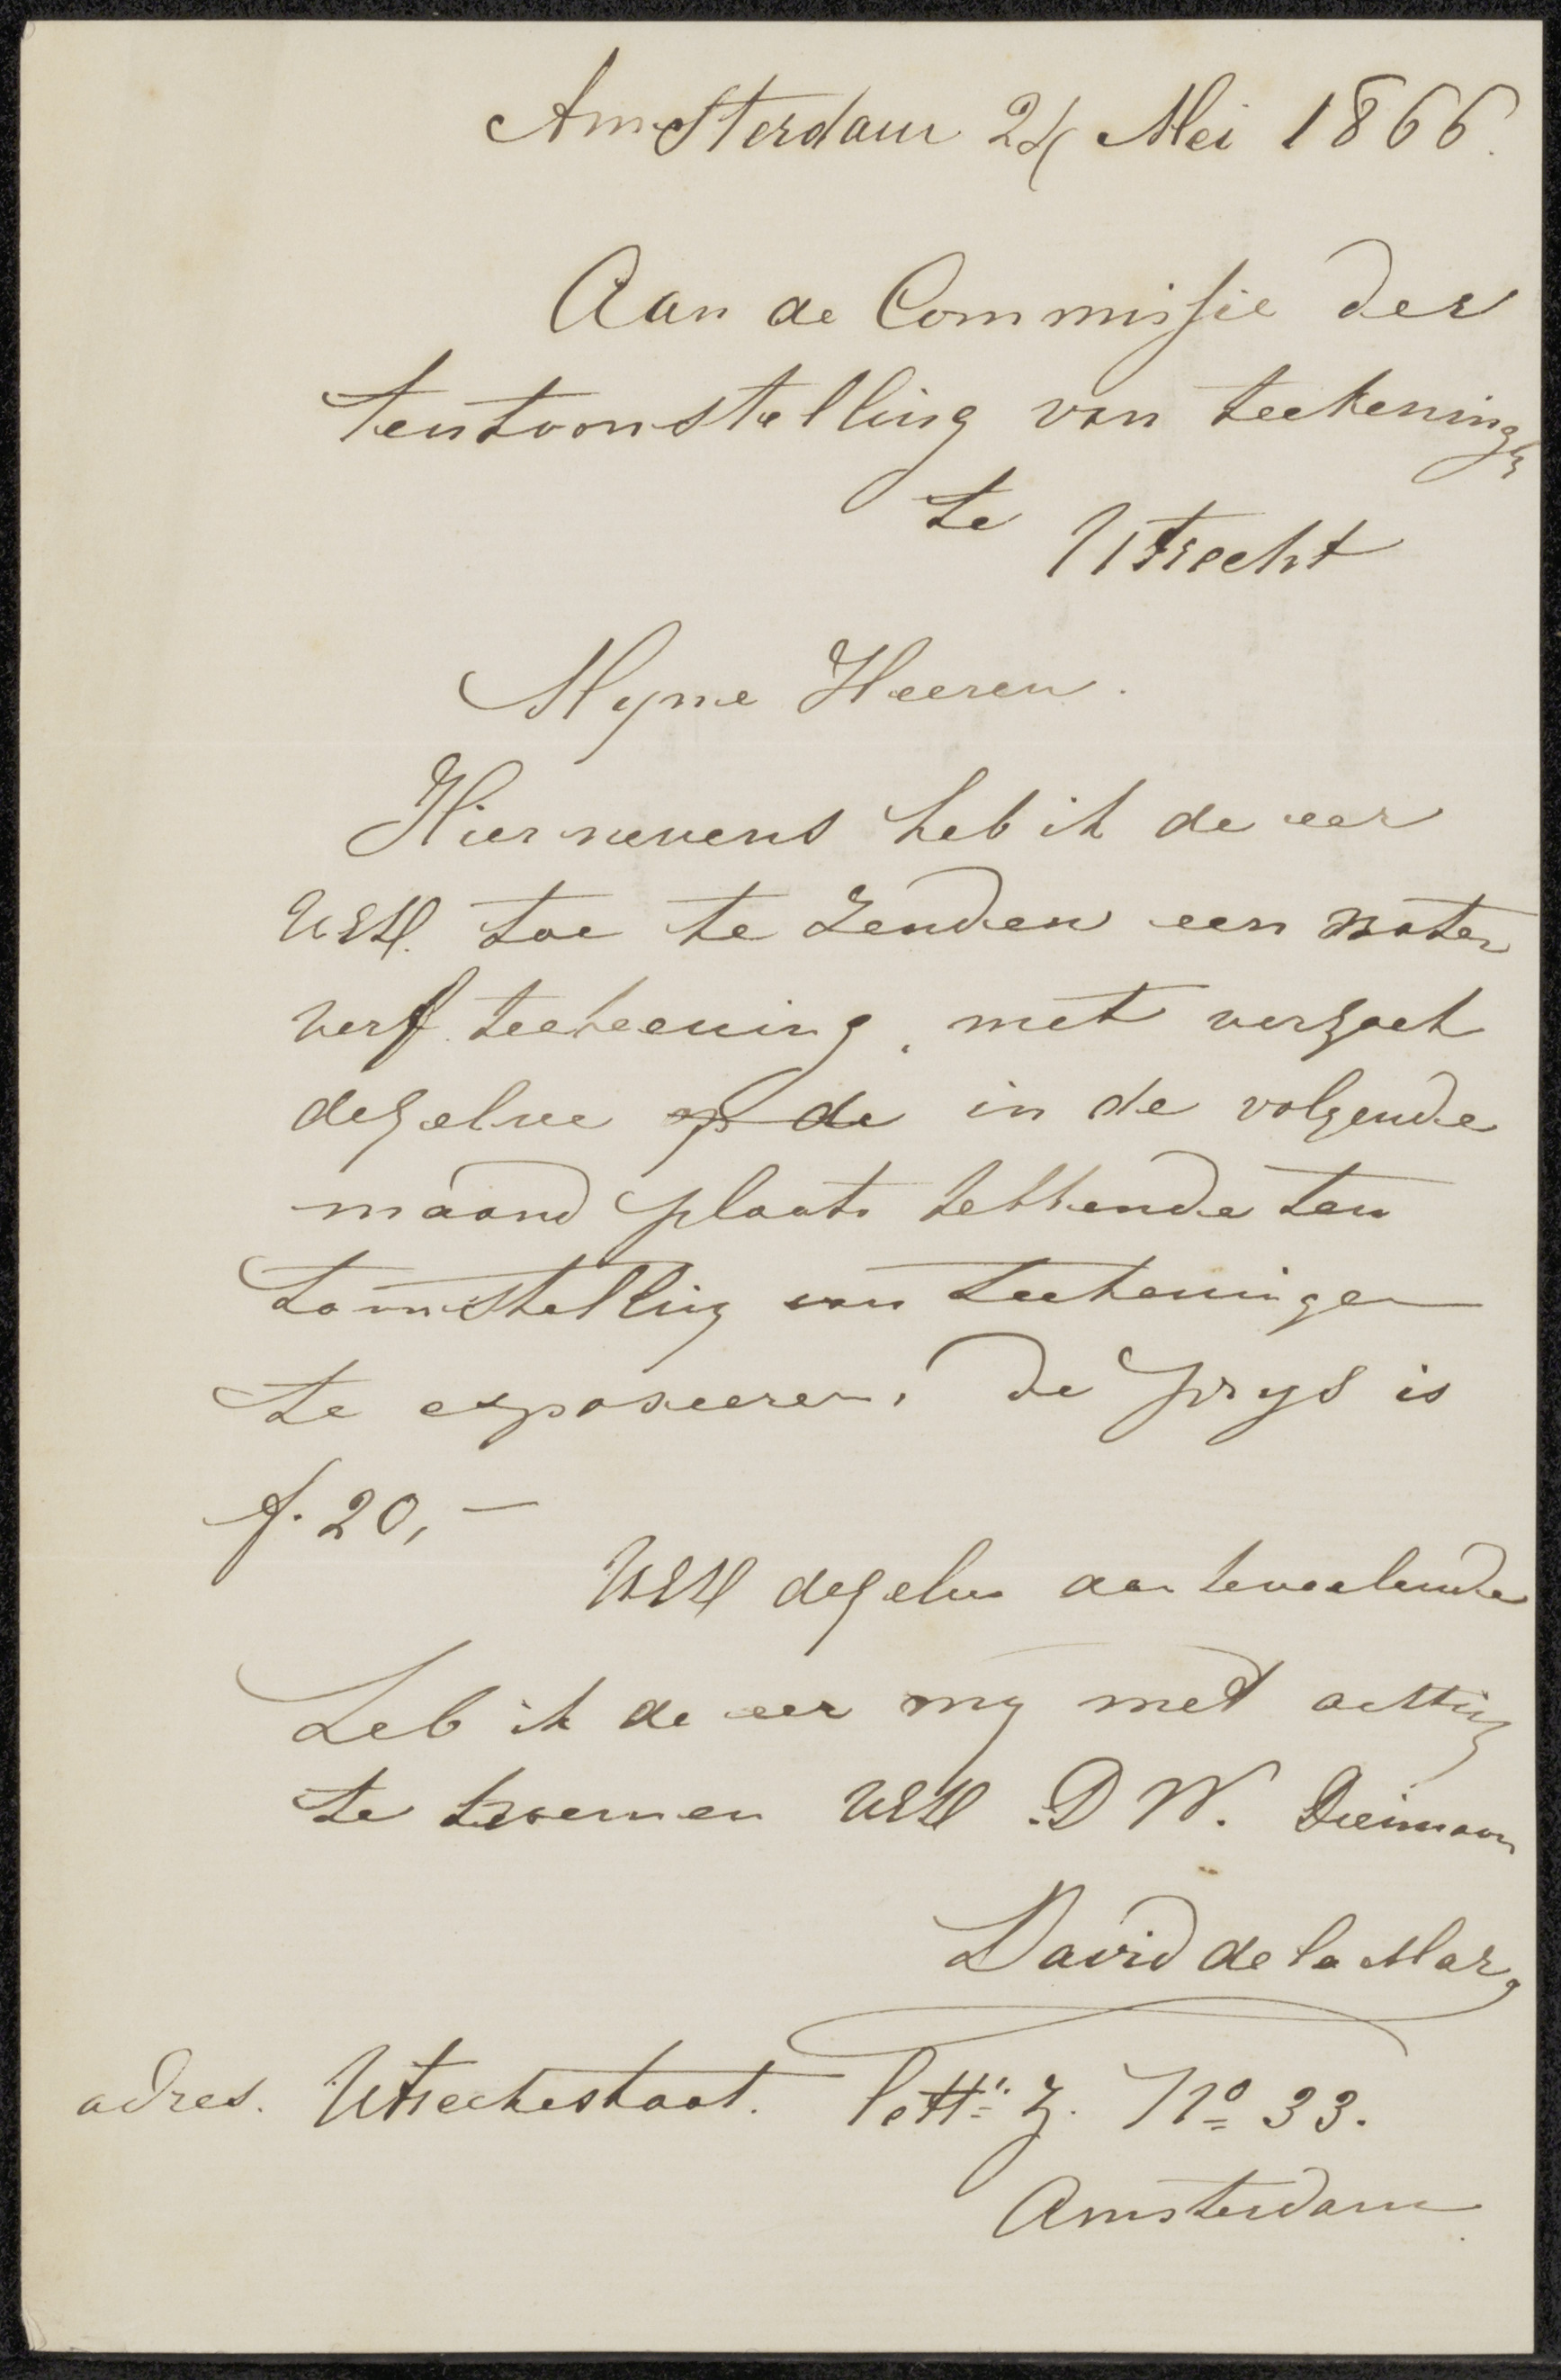 Amsterdam 24 Mei 1866.
Aan de Commissie der
tentoonstelling van teekeningen
te Utrecht
Myne Heeren.
Hiernevens heb ik de eer
UEH. toe te zenden een water
verf teekening, met verzoek
dezelve op de in de volgende
maand plaats hebbende ten
toonstelling van teekeningen
te exposeeren. de prys is
f. 20,—
UEH dezelve aanbevelende
heb ik de eer my met achting
te noemen UEH D W. Dienaar
David de la Mar
adres. Utrechtestraat. lettr. Z. No 33.
Amsterdam